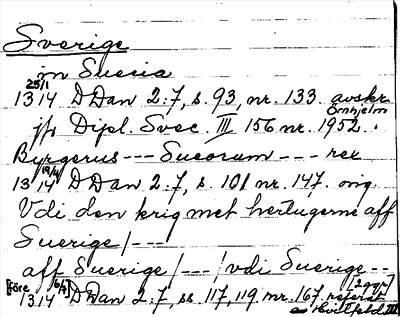 Sverige
in Suecia
25/1
1314 DDan 2:7, s. 93, nr. 133. avskr.
Örnhjelm
jfr Dipl. Svec. III 156 nr. 1952.
Byrgerus --- Sueorum --- rex
19/4
1314 DDan 2:7, s. 101 nr. 147. orig.
Vdi den krig met hertugerne aff
Suerige /---
aff Suerige /---/ vdi Suerige --
[2 ggr]
[före 6/7]
1314 DDan 2:7, ss. 117, 119 nr. 167. referat
Hvitfeld III